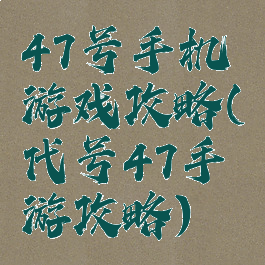 47号手机
游戏攻略(
代号47手
游攻略)